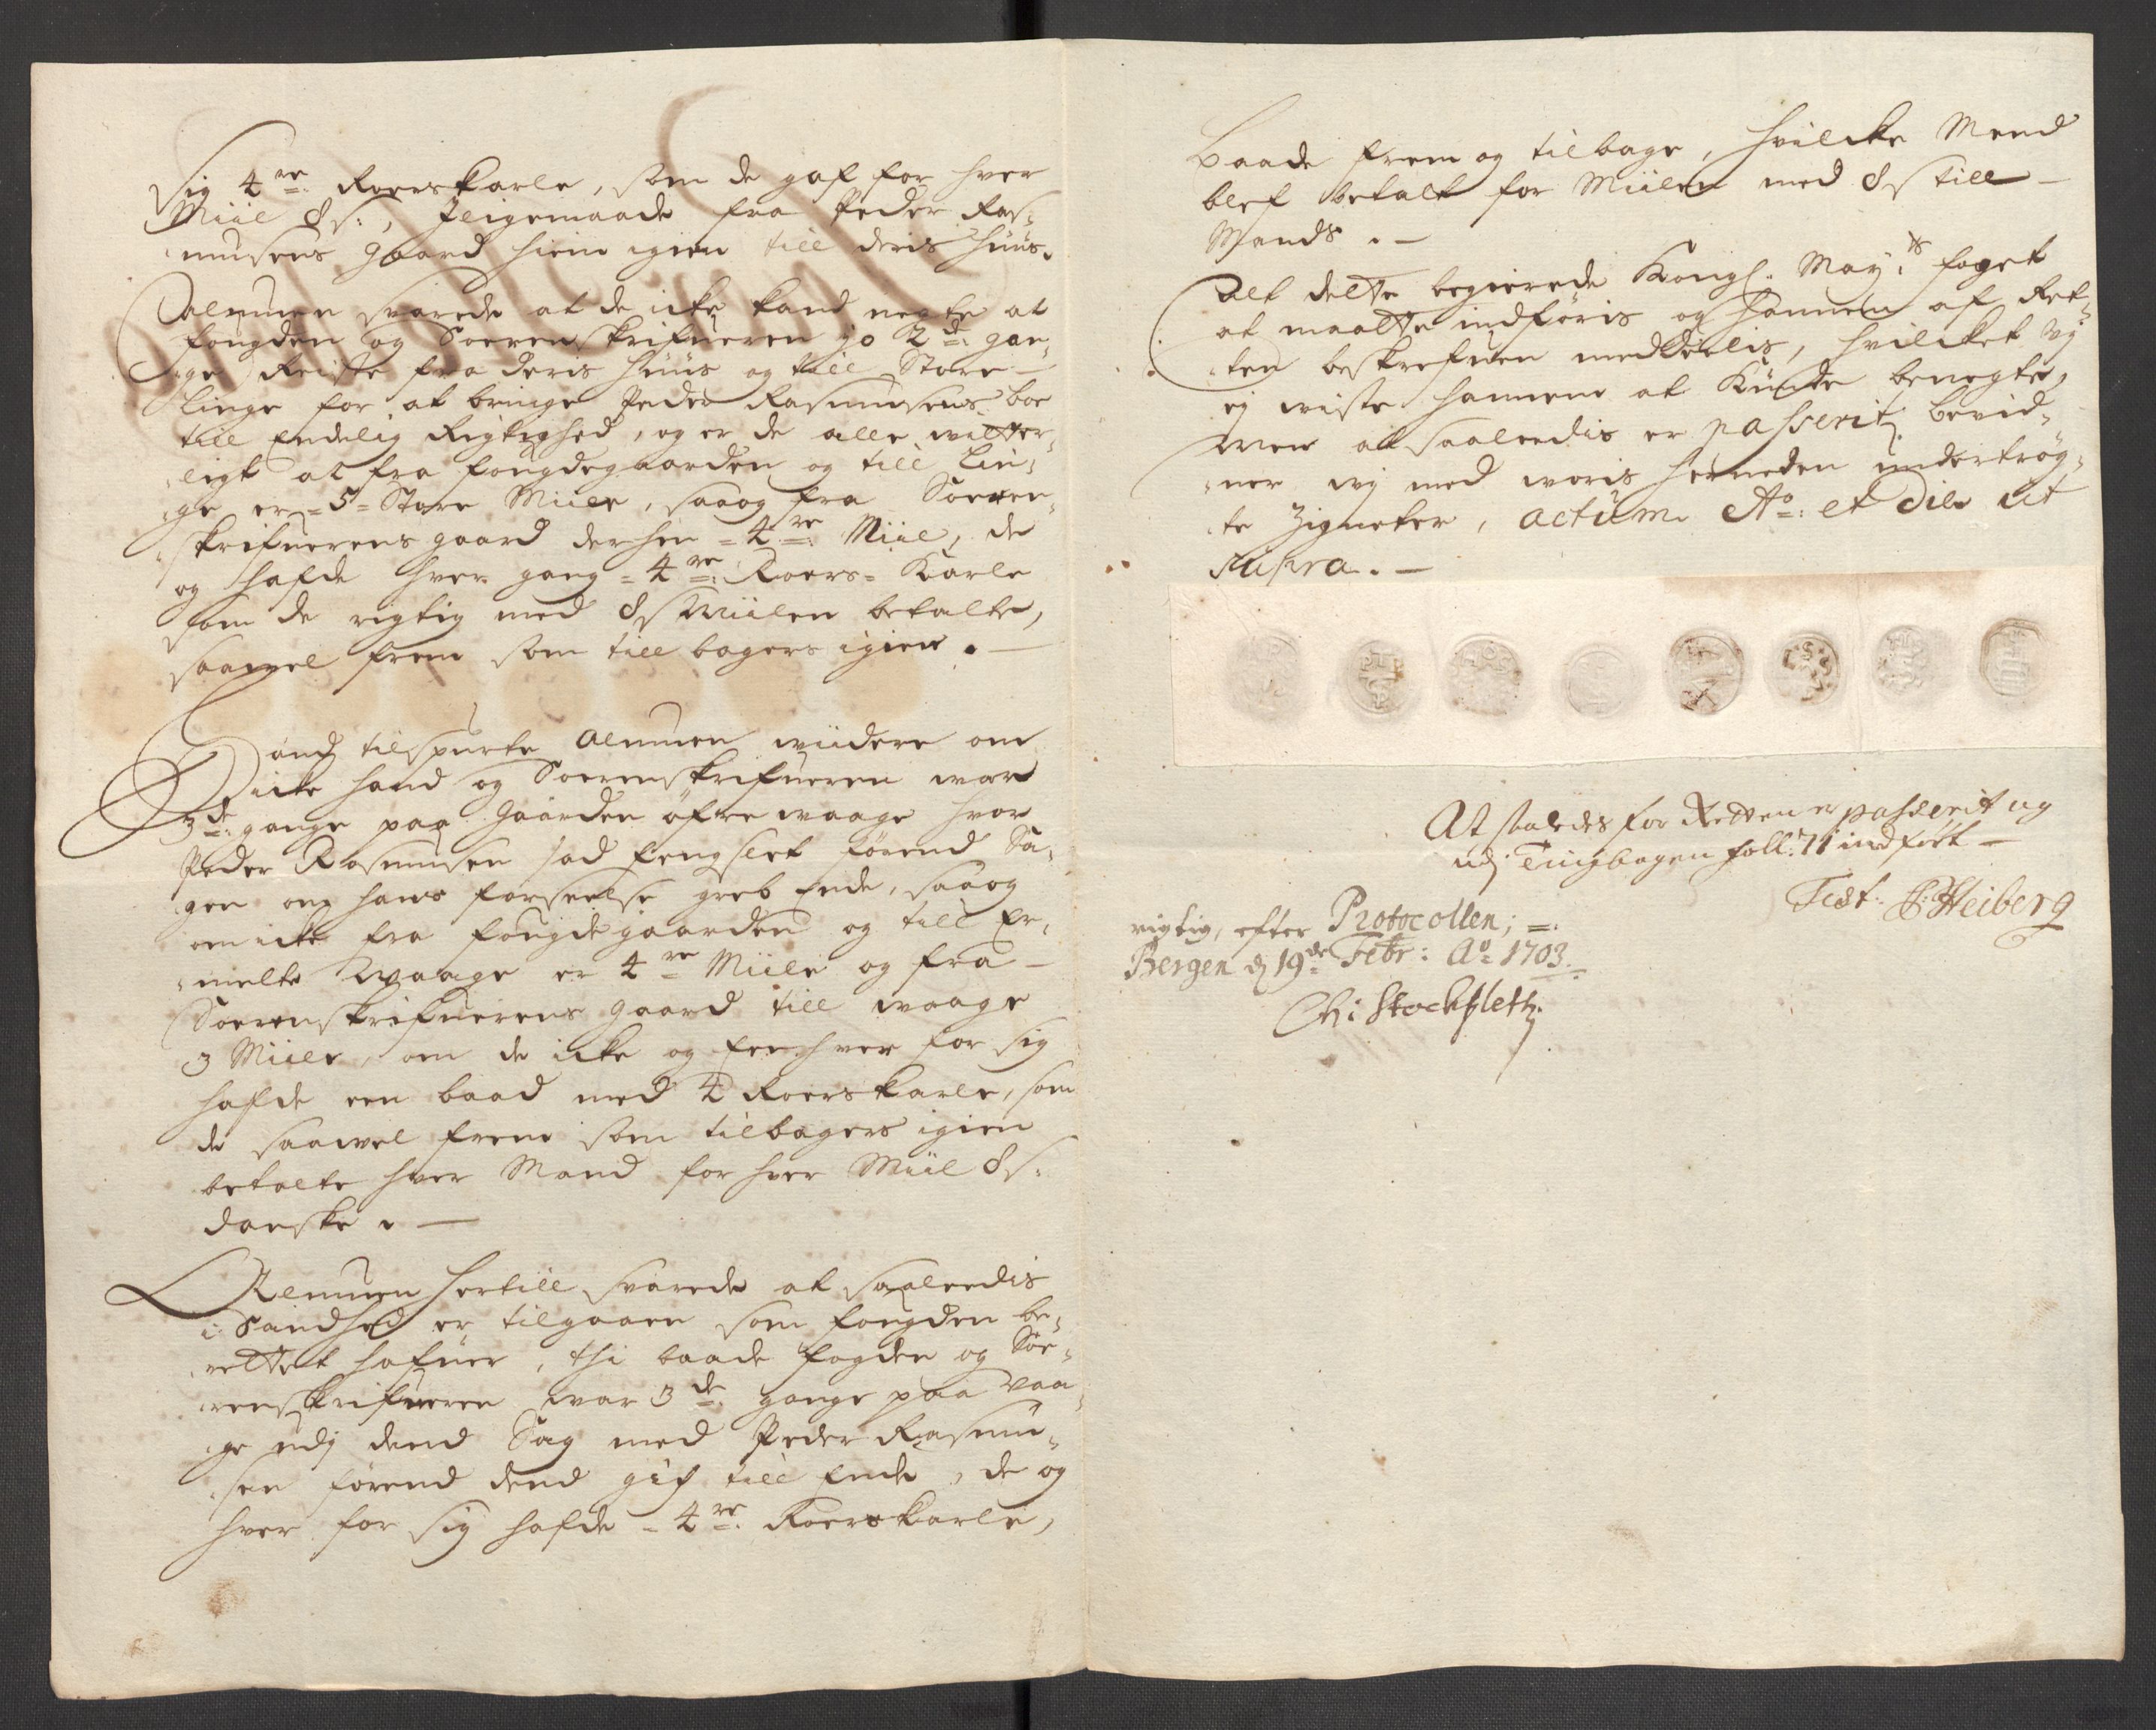 sig 4re Roerskarle, som de gaf for hver
Miil 8 s:, I ligemaade fra Peder Ras-
musens gaard hiem igien till deris huus.
Almuen svarede at de icke kand negte at
fougden og Sorenskrifueren jo 2de gan-
ge Reiste fra deris huus og till Store
Linge for at bringe Peder Rasmusens boe
till Endelig Rigtighed, og er de alle witter-
ligt at fra fougdegaarden og till Lin-
ge er 5 Store Miile, saa og fra Soren-
skrifuerens gaard derhen 4re Miil, de
og hafde hver gang 4re Roers-Karle
som de rigtig med 8 s Miilen betalte,
saavel frem som till bagers igien. —
Fand tilspurte Almuen widere om
icke hand og Sorenskrifueren war
3de gange paa Gaarden öfre waage hvor
Peder Rasmusen sad fengslet förend Sa-
gen om hans forseelse greb Ende, saa og
om icke fra fougdegaarden og till Er-
melte Waage er 4re Miile og fra
Sorenskrifuerens gaard till waage
3 Miile, om de icke og Enhver for sig
hafde een baad med 4 Roerskarle, som
de saavel frem som tilbagers igien
betalte hver Mand for hver Miil 8 s:
danske. —
Almuen hertill svarede at saaleedis
i Sandhed er tilgaaen som fougden be-
rettet hafuer, thi baade fogden og Sor-
renskrifueren war 3de gange paa Vaa-
ge udj dend Sag med Peder Rasmu-
sen förend dend gik till Ende, de og
hver for sig hafde 4re Roerskarle,
Baade frem og tilbage, hvilcke Mend
blef betalt for Miilen med 8 s till
Mands. —
Alt dette begierede Kongl. Mayts foget
at maatte indföris og hannem af Ret-
ten beskrefuen meddeelis, hvilcket wj
ej wiste hannem at Kunde benegte,
Men at saaleedis er passerit bevid-
ner wj med woris herneden undertrög-
te Zigneter, actum Ao: et Die ut
supra. —
At saaledes for Retten er passerit og
udj Tingbogen foll: 71 indfört —
Test: S: Heiberg
rigtig, efter Protocollen; =:
Bergen d 19de Febr: Ao 1703.
Chr: Stockfleth.